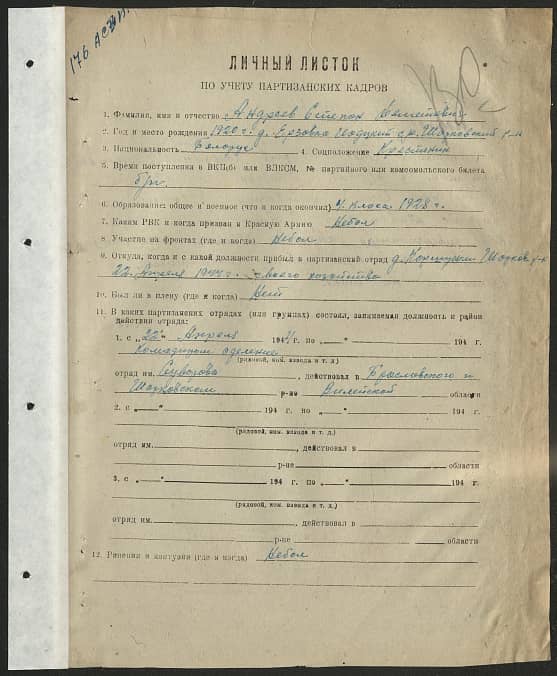 176
ЛИЧНЫЙ ЛИСТОК
ПО УЧЕТУ ПАРТИЗАНСКИХ КАДРОВ
1. Фамилия, имя и отчество Андреев Степан
2. Год и место рождения 1920 г. д. Ерзовка с/с. Шарковский р-н
3. Национальность Белорус 4. Соцположение Крестянин
5. Время поступления в ВКП(б) или ВЛКСМ, № партийного или комсомольского билета
б/п.
6. Образование: общее и военное (что и когда окончил) 4 класа. 1928 г.
7. Каким РВК и когда призван в Красную Армию Небол
8. Участие на фронтах (где и когда) Небол
9. Откуда, когда и с какой должности прибыл в партизанский отряд д. Шарков. р-н
22 Апреля 1944 г. своего хозяйства
10. Был ли в плену (где и когда) Нет
11. В каких партизанских отрядах (или группах) состоял, занимаемая должность и район
действия отряда:
1. с „22" Апреля 1944 г. по „ " 194 г.
Командиром отделения
(рядовой, ком. взвода и т. д.)
отряд им. Суворова, действовал в Браславского и
Шарковском р-не Вилейской области
2. с „ " 194 г. по „ " 194 г.
(рядовой, ком. взвода и т. д.)
отряд им. , действовал в
р-не области
3. с „ " 194 г. по „ " 194 г.
(рядовой, ком. взвода и т. д.)
отряд им. , действовал в
р-не области
12. Ранения и контузии (где и когда) Небол